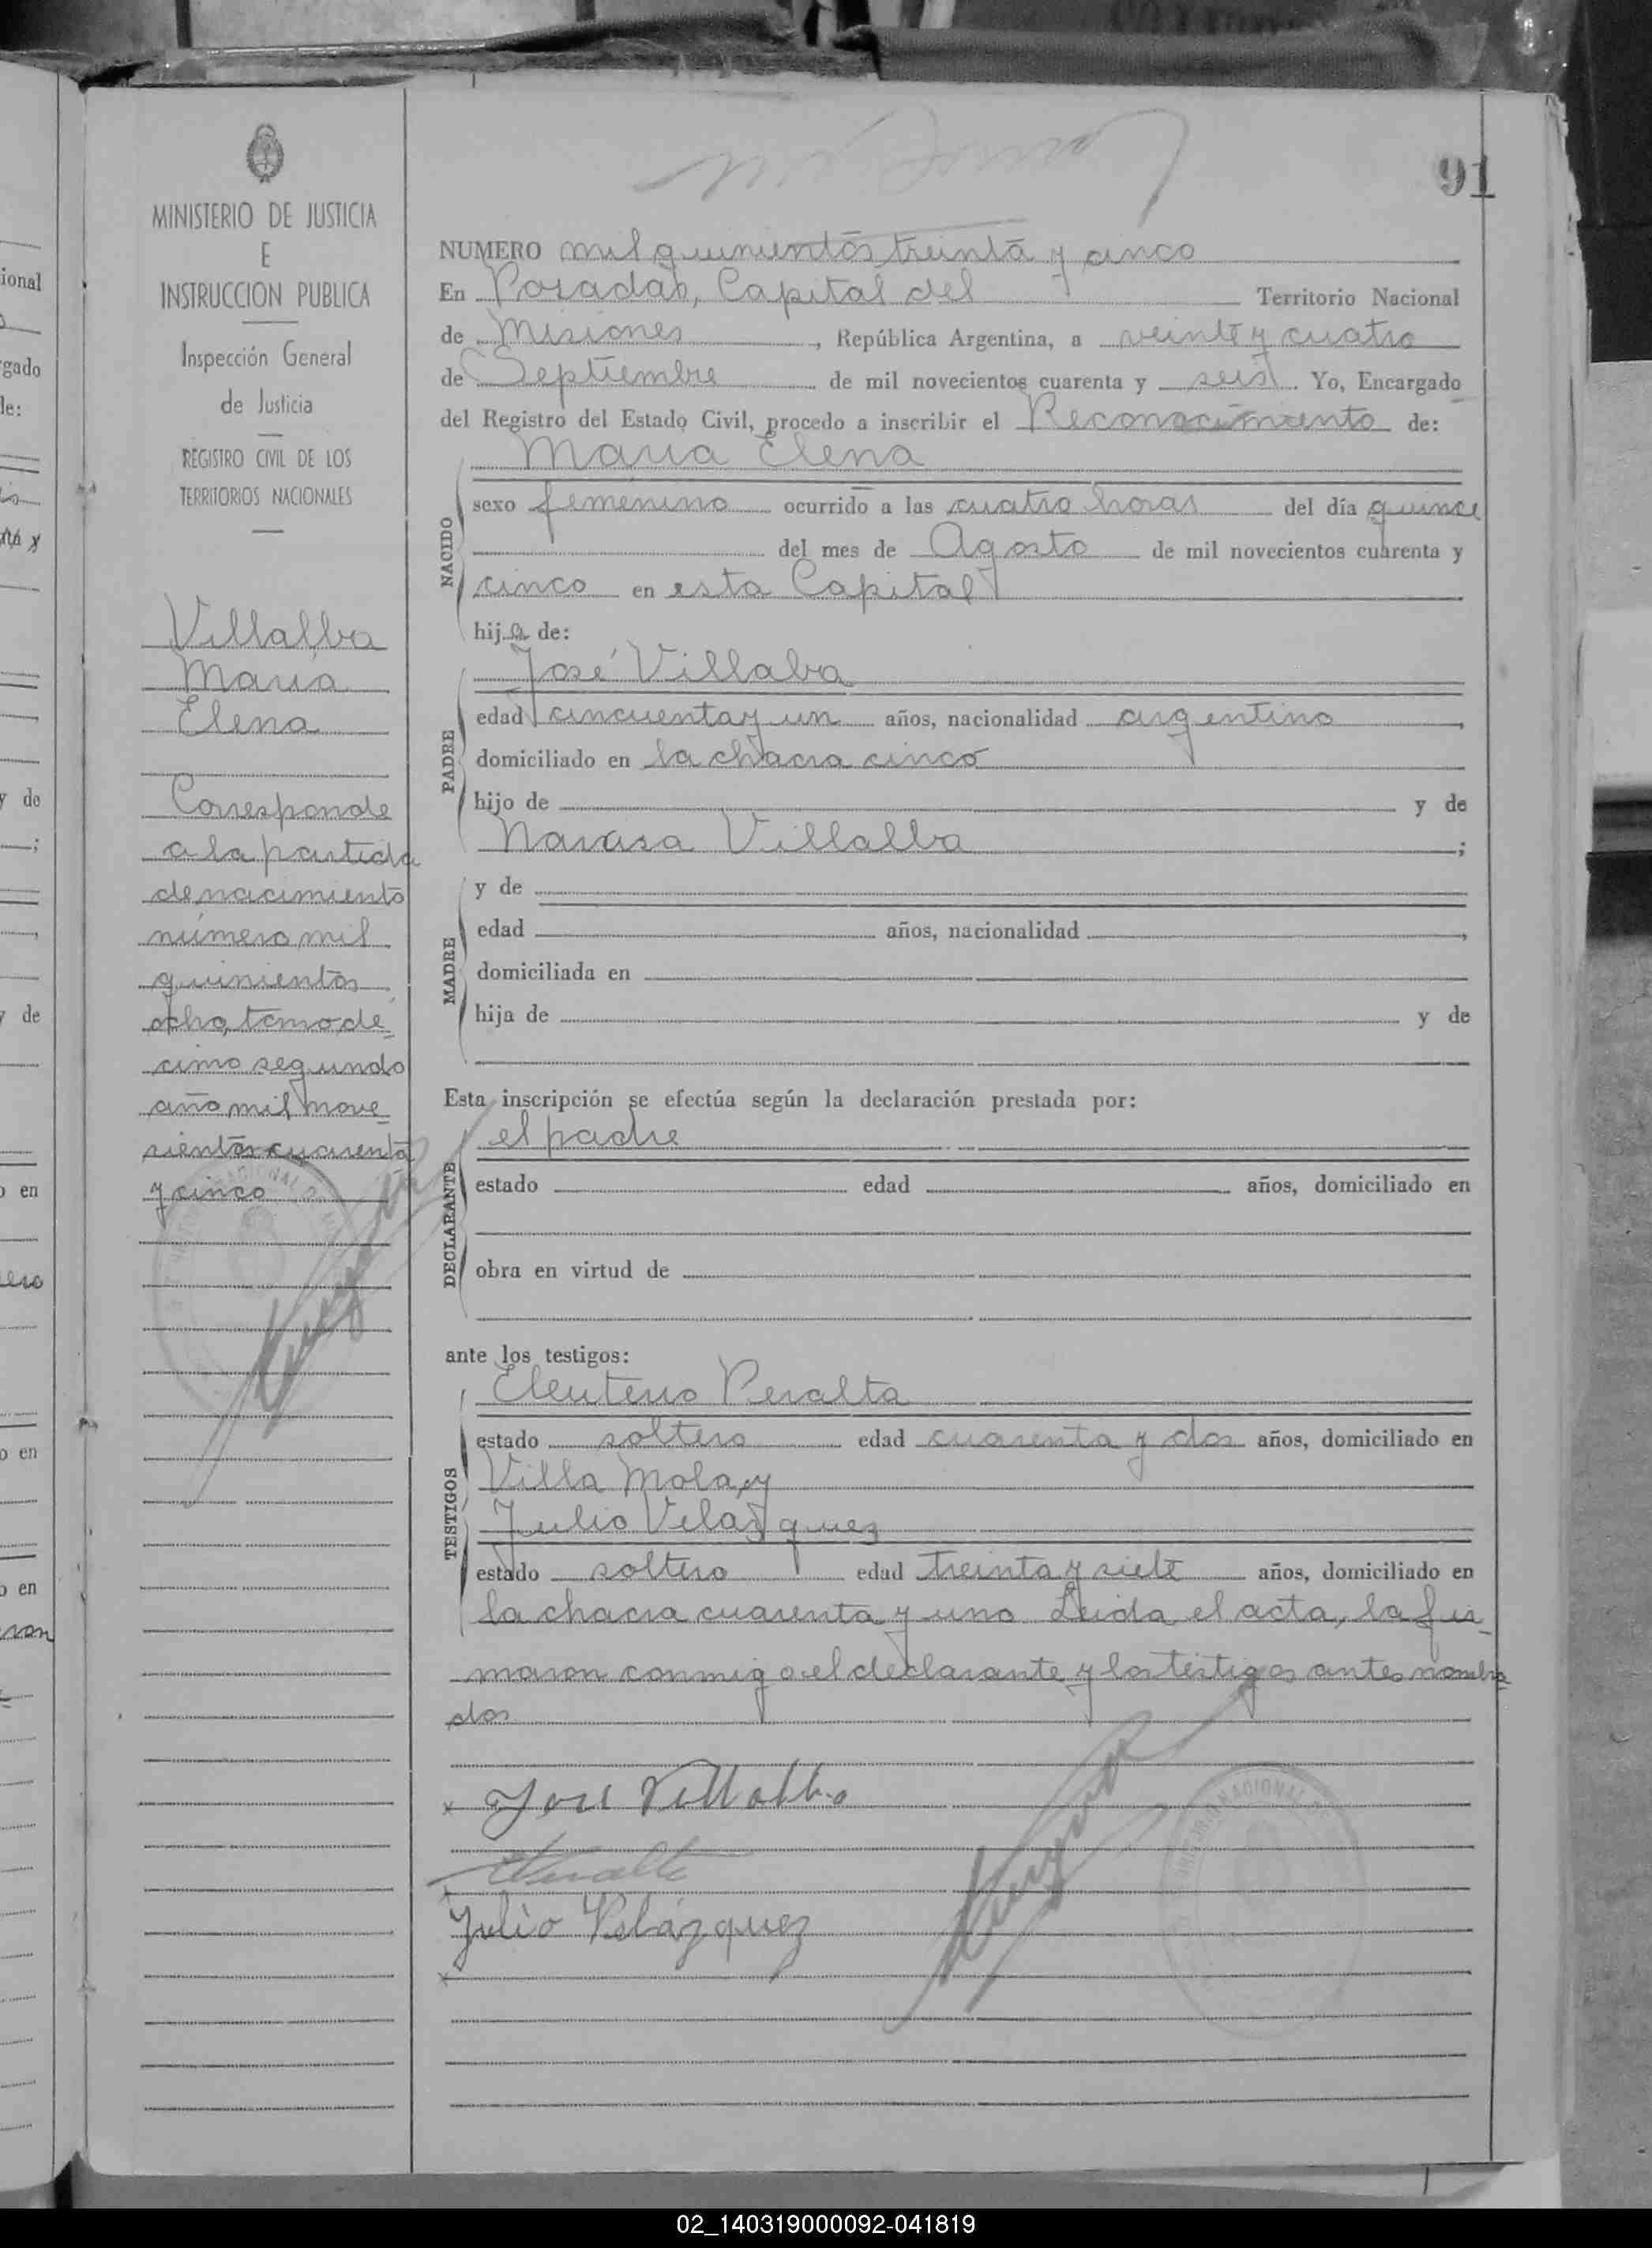 91
MINISTERIO DE JUSTICIA
E
INSTRUCCION PUBLICA
Inspección General
de Justicia
REGISTRO CIVIL DE LOS
TERRITORIOS NACIONALES
Villalba
María
Elena
Corresponde
a la partida
de nacimiento
número mil
quinientos
ocho, tomo dé
cimo segundo
año mil nove
sientos cuarenta
y cinco
NUMERO mil quinientos treinta y cinco
En Posadas, Capital del Territorio Nacional
de Misiones, República Argentina, a veinte y cuatro
de Septiembre de mil novecientos cuarenta y seis. Yo, Encargado
del Registro del Estado Civil, procedo a inscribir el Reconocimiento de:
María Elena
NACIDO
sexo femenino ocurrido a las cuatro horas del día quince
del mes de Agosto de mil novecientos cuarenta y
cinco en esta Capital
hija de:
José Villaba
PADRE
edad cincuenta y un años, nacionalidad argentino,
domiciliado en la chacra cinco
hijo de y de
Villalba;
MADRE
y de
edad años, nacionalidad ,
domiciliada en
hija de y de
Esta inscripción se efectúa según la declaración prestada por:
el padre
DECLARANTE
estado edad años, domiciliado en
obra en virtud de
ante los testigos:
Eleuterio Peralta
TESTIGOS
estado soltero edad cuarenta y dos años, domiciliado en
Villa Mola, y
Julio Velazquez
estado soltero edad treinta y siete años, domiciliado en
la chacra cuarenta y una Leida el acta, la fir
maron conmigo el declarante y los testigos antes nombra
dos
x José Villalba
Peralta
Julio Velázquez
x
02_140319000092-041819